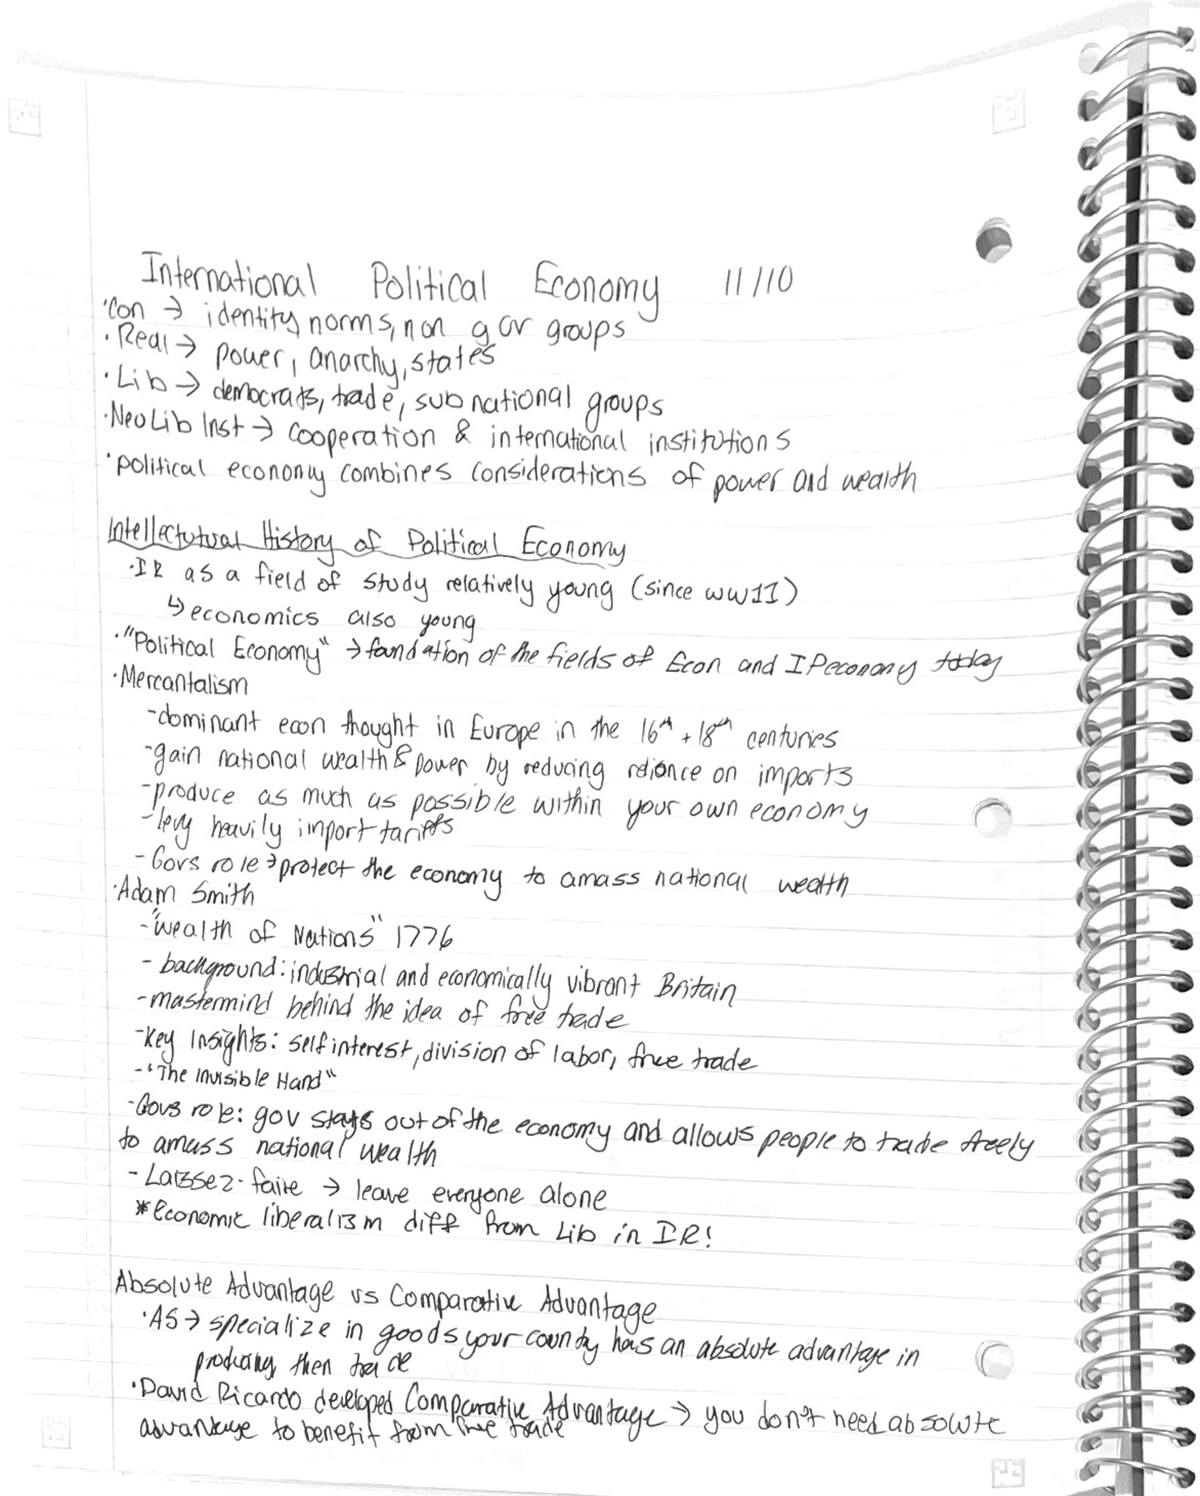 International Political Economy 11/10
·Con → identity, norms, non gov groups
·Real → power, anarchy, states
·Lib → democrats, trade, subnational groups
·NeoLib Inst → cooperation & international institutions
·political economy combines considerations of power and wealth
Intellectutual History of Political Economy
·IR as a field of study relatively young (since WW11)
↳ economics also young
·"Political Economy" → foundation of the fields of Econ and IPeconomy today
·Mercantalism
-dominant econ thought in Europe in the 16th + 18th centuries
-gain national wealth & power by reducing reliance on imports
-produce as much as possible within your own economy
-levy heavily import tariffs
-Govs role → protect the economy to amass national wealth
·Adam Smith
-"Wealth of Nations" 1776
- background: industrial and economically vibrant Britain
-mastermind behind the idea of free trade
-Key Insights: self interest, division of labor, free trade
-"The Invisible Hand"
-Govs role: gov stays out of the economy and allows people to trade freely
to amass national wealth
- Laissez-faire → leave everyone alone
*Economic liberalism diff from Lib in IR!
Absolute Advantage vs Comparative Advantage
·AS → specialize in goods your county has an absolute advantage in
producing then trade
·David Ricardo developed Comparative Advantage → you don't need absolute
advantage to benefit from free trade